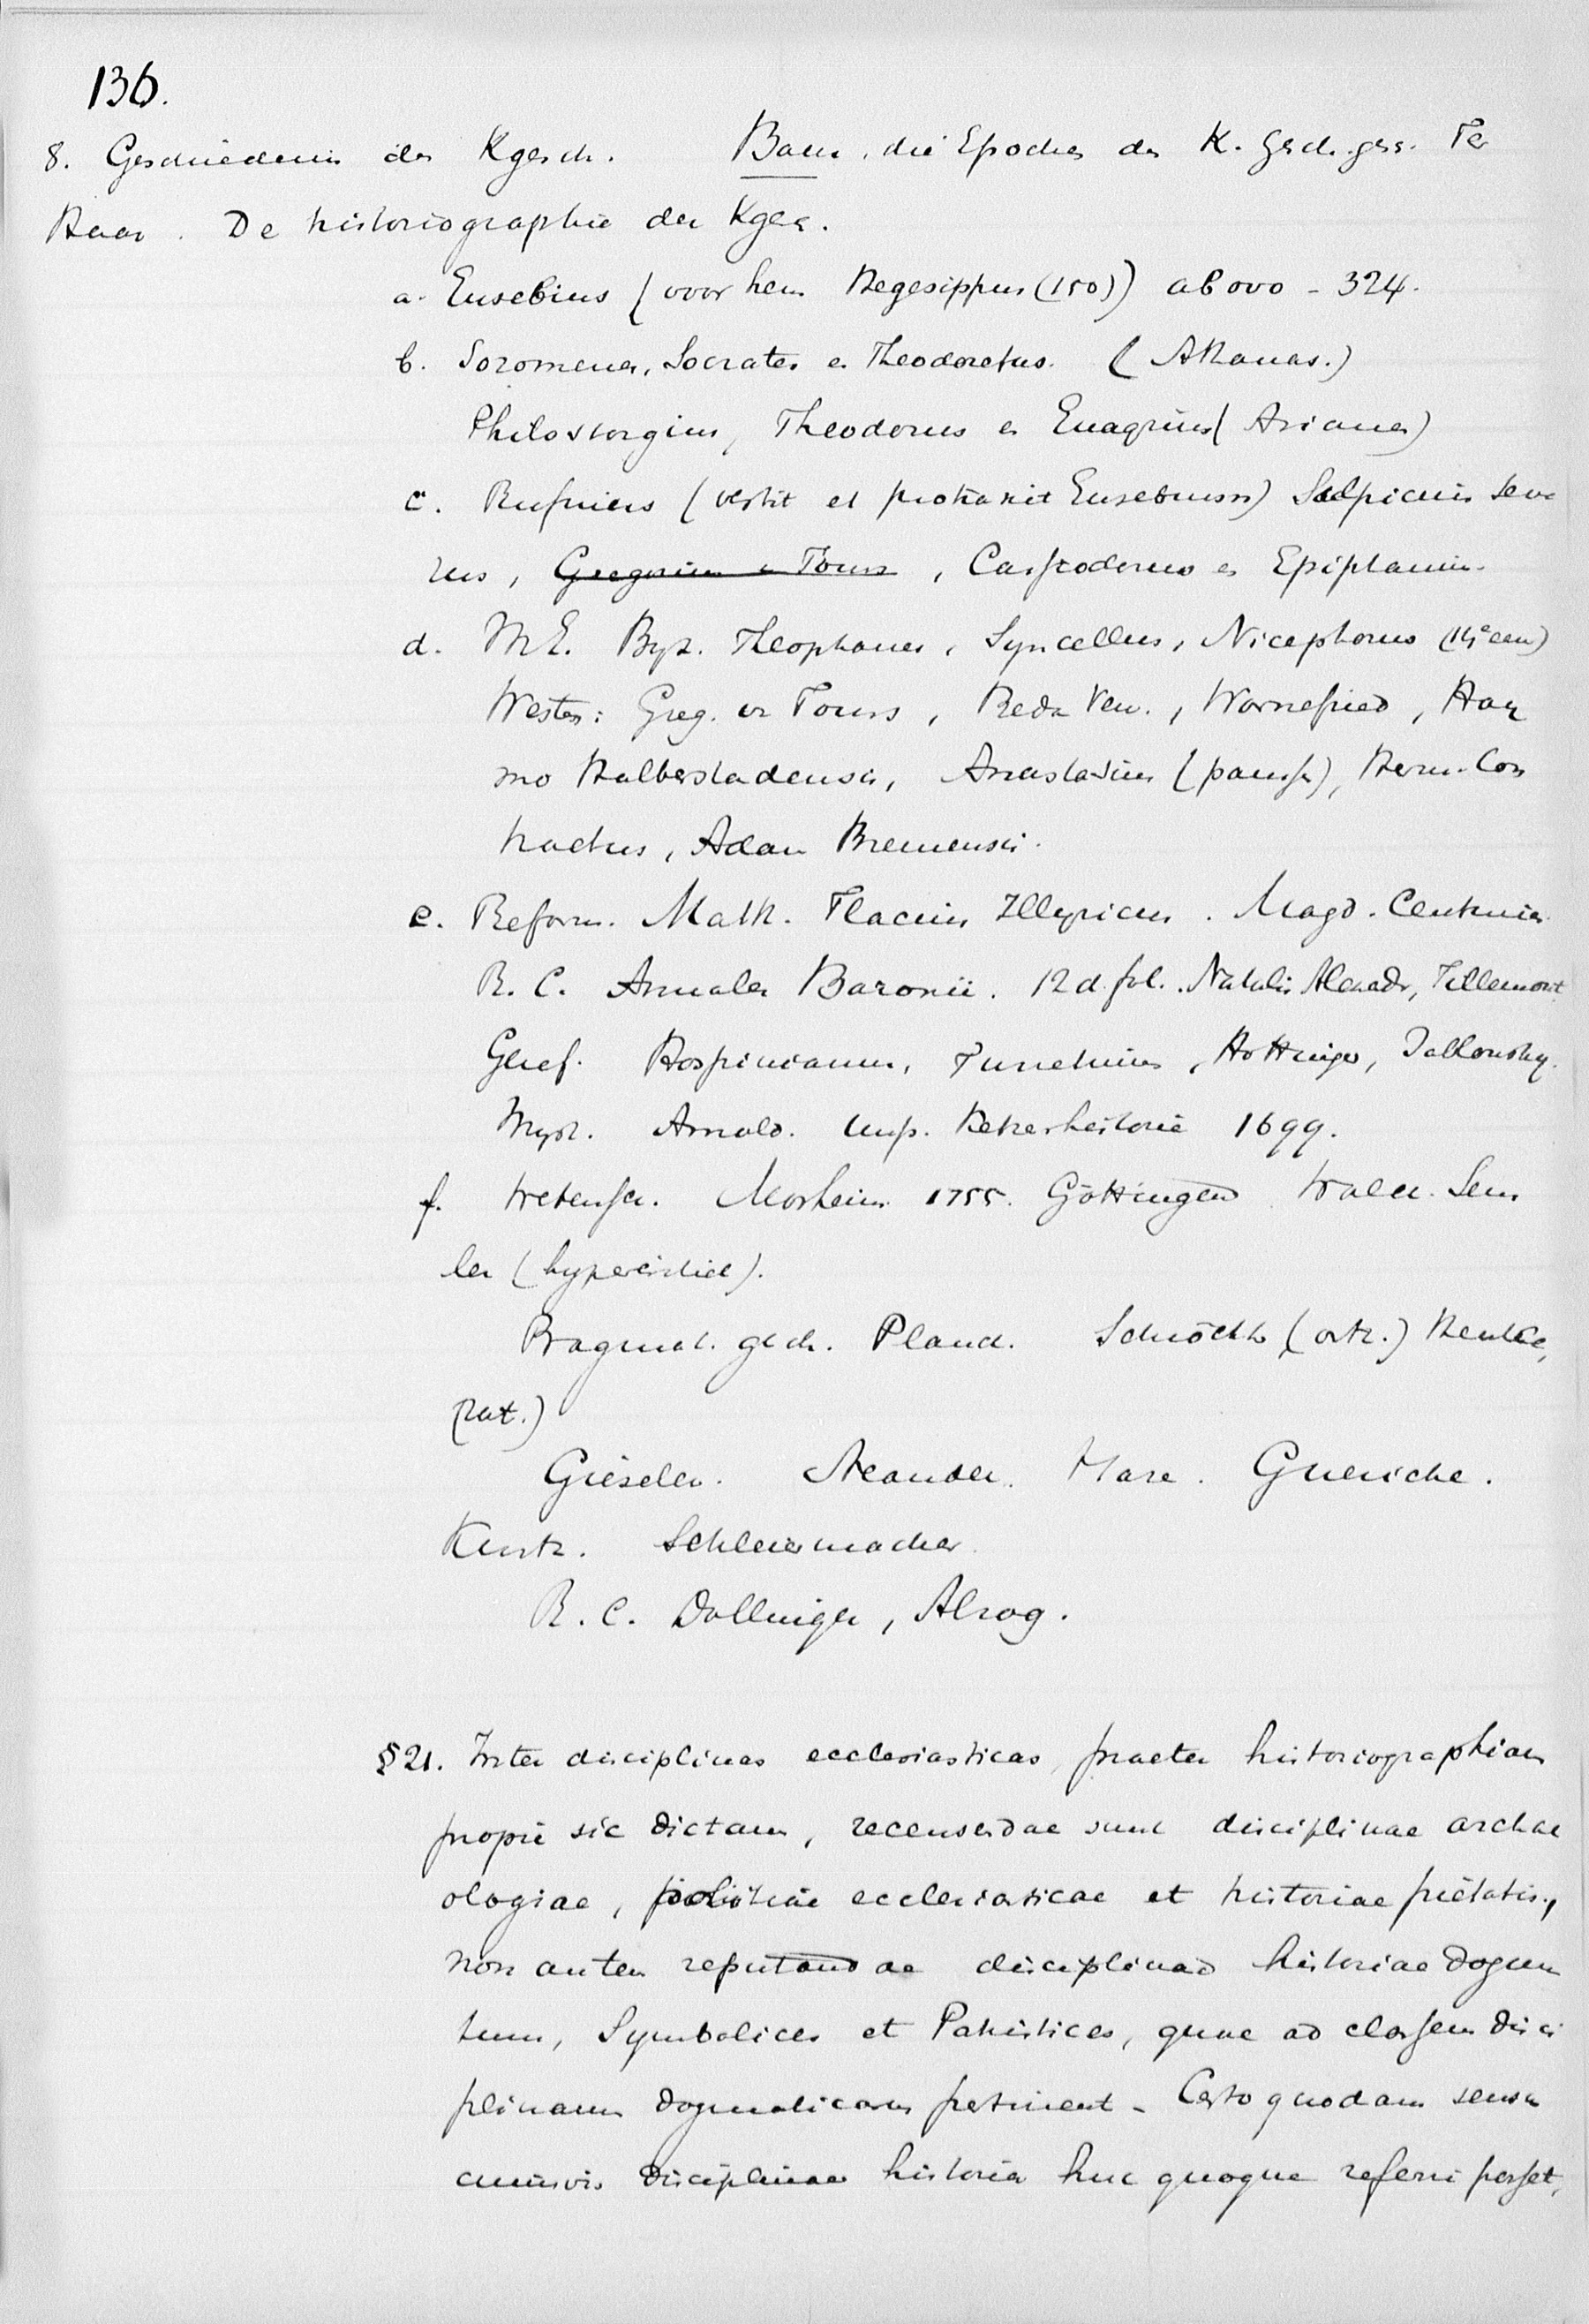 136.
8. Geschiedenis der Kgesch. Baur, die Epochen der K. Gesch.gess. Ter
Haar. De historiographie der Kges.
a. Eusebius (voor hem Hegesippus (150)) ab ovo - 324.
b. Sozomenes, Socrates en Theodoretus. (Athanas.)
Philostorgius, Theodorus en Euagrius (Arianen)
c. Rufinus (vertit et protraxit Eusebium) Sulpicius Seve
rus, Gregorius v Tours, Cassiodorus en Epiphanius.
d. M.E. Byz. Theophanes, Syncellus, Nicephorus (14e eeuw)
Westen: Greg. v Tours, Beda Ven., Warnefried, Hay
mo Halberstadensis, Anastasius (pausen), Herm. Con
tractus, Adam Bremensis.
e. Reform. Matth. Flacius Illyricus. Magd. Centuriën
R. C. Annales Baronii. 12 d. fol. Natalis Alexadr, Tillemont
Geref. Hospinianus, Hottinger, Jablonsky.
Myst. Arnold. Unp. Ketzerhistorie 1699.
f. Wetensch. Mosheim 1755. Göttingen Walch. Sem
ler (hypercritiek).
Pragmat. gesch. Planck. Schröckh (orth.) Henke,
(rat.)
Gieseler. Neander. Hase. Guericke.
Kurtz. Schleiermacher.
R. C. Dollinger, Alzog.
§ 21. Inter disciplinas ecclesiasticas, praeter historiographiam
proprie sic dictam, recensendae sunt disciplinae archae
ologiae, politiae ecclesiasticae et historiae pietatis,
non autem reputandae disciplinae historiae dogma
tum, Symbolices et Patristices, quae ad classem disci
plinarum dogmaticarum pertinent. Certo quodam sensu
cuiusvis disciplinae historia huc quoque referri posset,